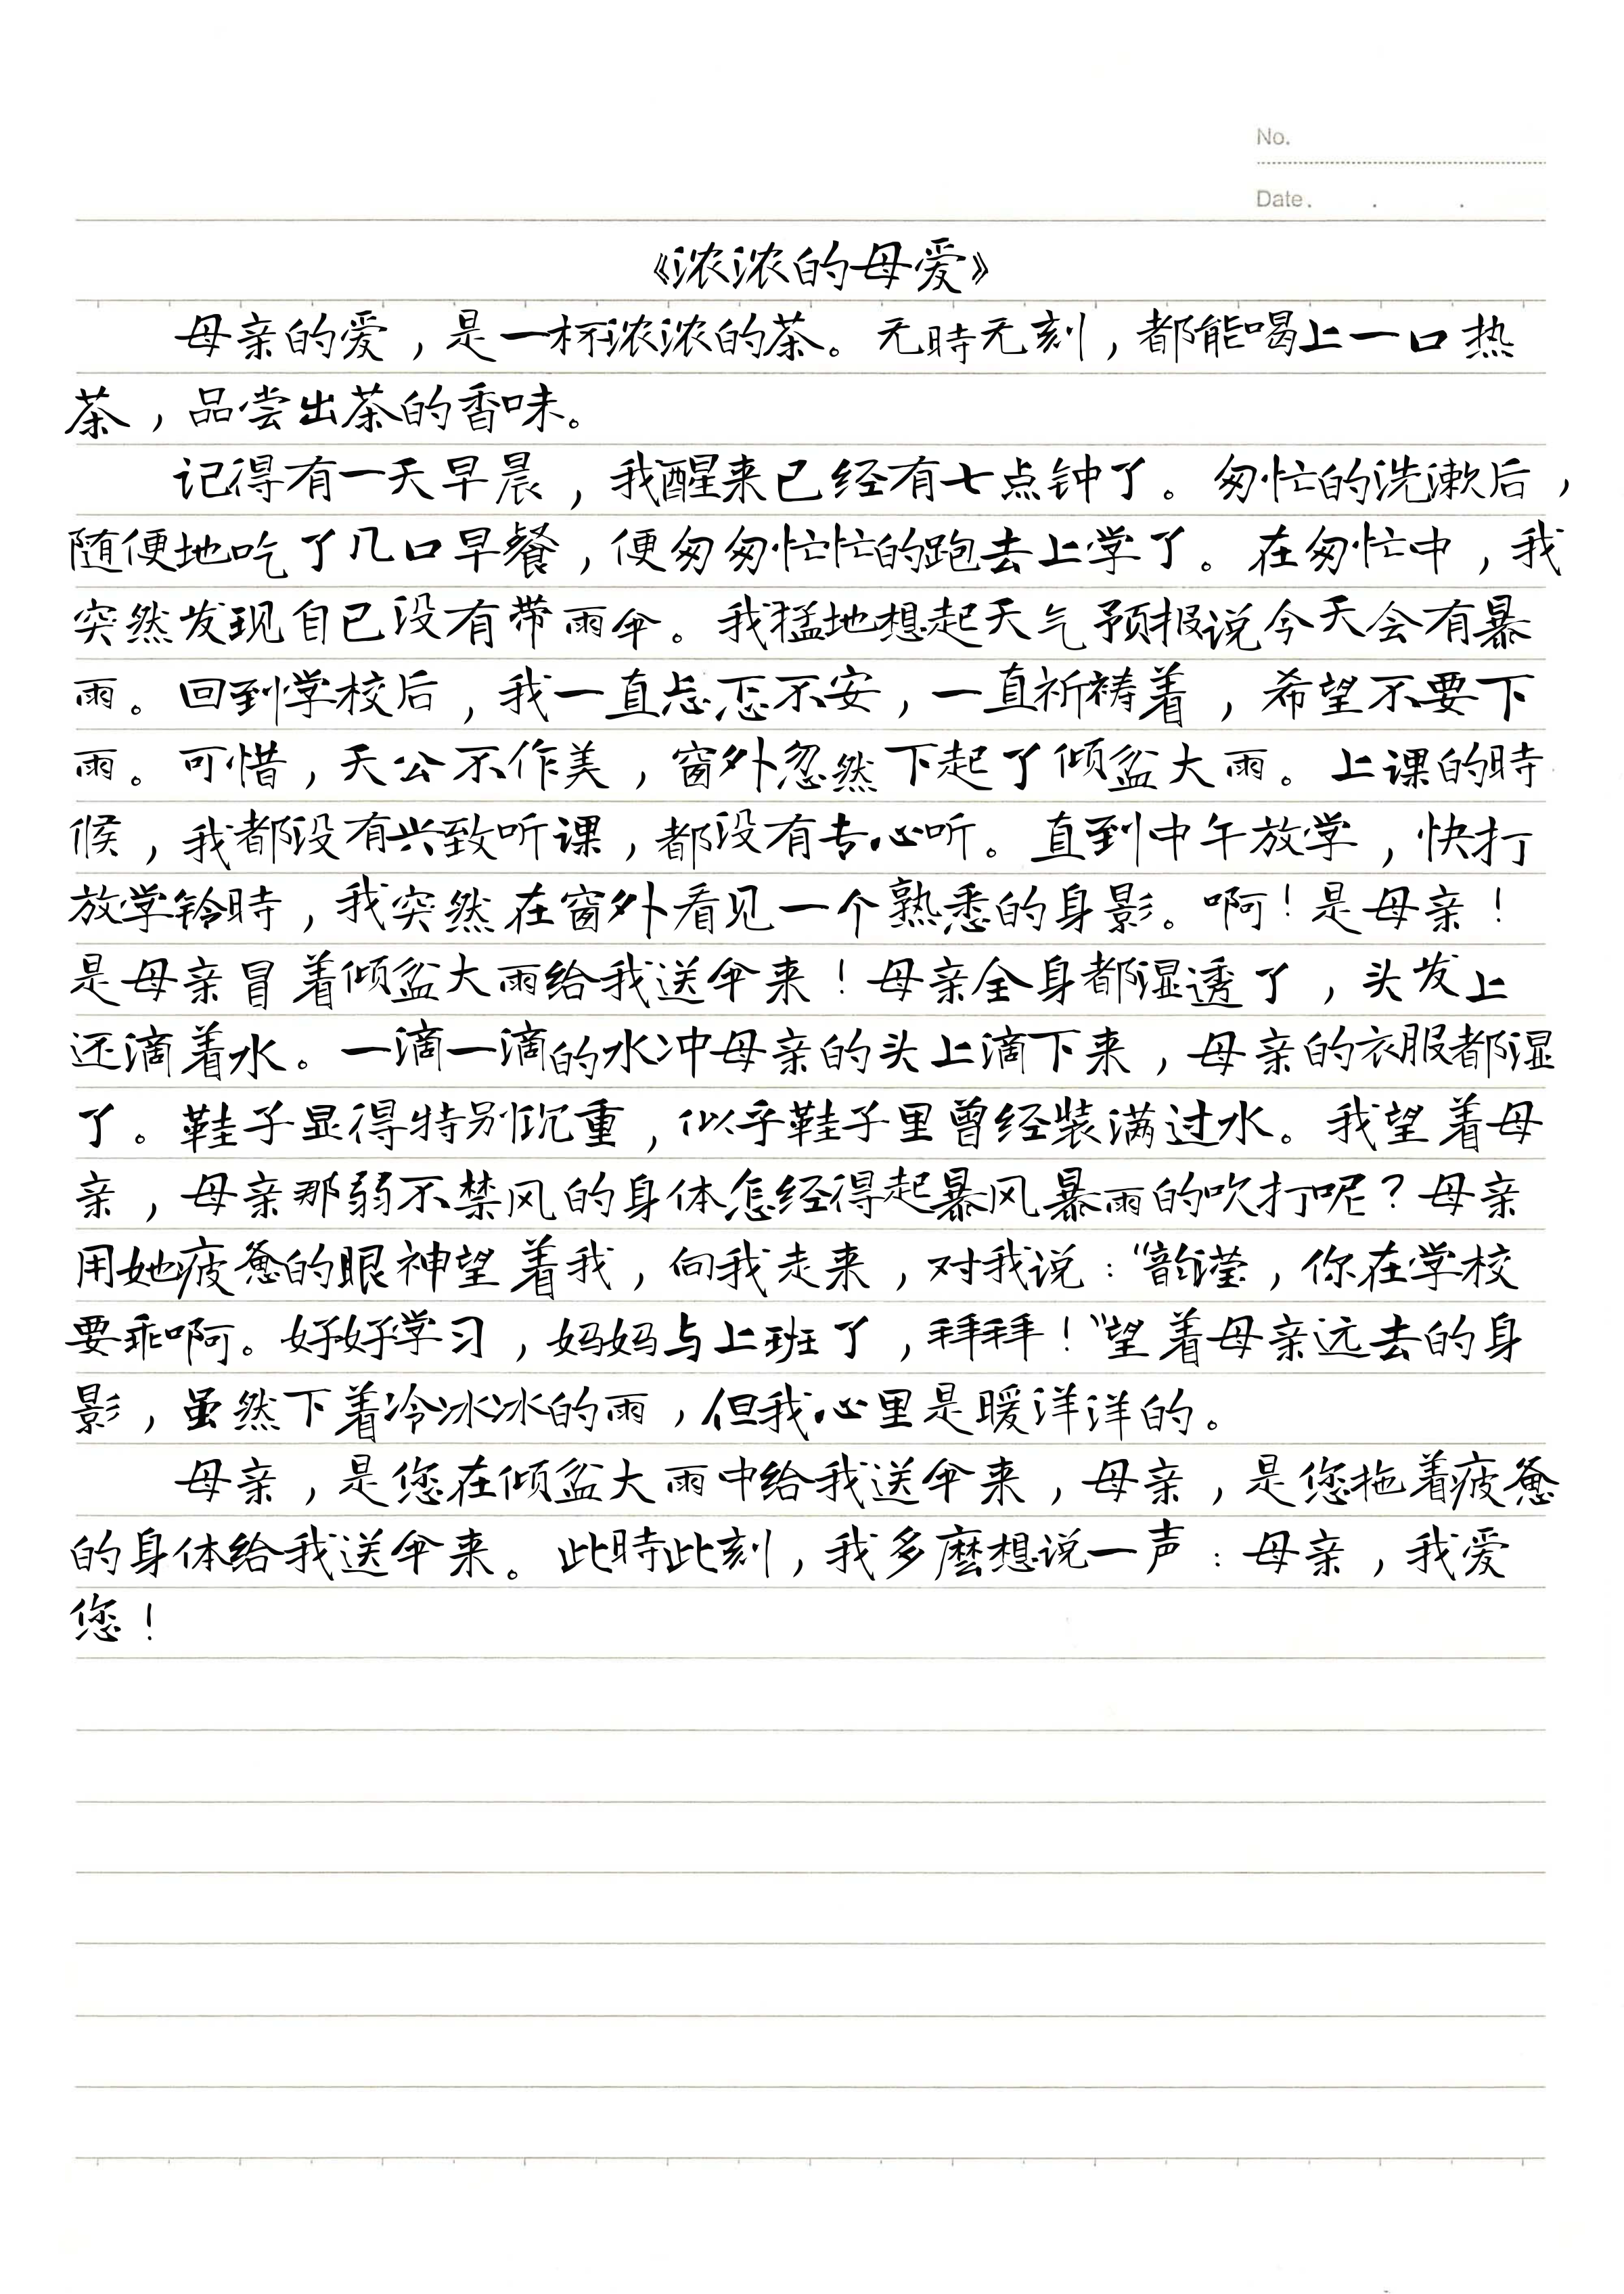 No.
Date.   .   .
《浓浓的母爱》
母亲的爱，是一杯浓浓的茶。无時无刻，都能喝上一口热
茶，品尝出茶的香味。
记得有一天早晨，我醒来已经有七点钟了。匆忙的洗漱后，
随便地吃了几口早餐，便匆匆忙忙的跑去上学了。在匆忙中，我
突然发现自己没有带雨伞。我猛地想起天气预报说今天会有暴
雨。回到学校后，我一直忐忑不安，一直祈祷着，希望不要下
雨。可惜，天公不作美，窗外忽然下起了倾盆大雨。上课的時
候，我都没有兴致听课，都没有专心听。直到中午放学，快打
放学铃時，我突然在窗外看见一个熟悉的身影。啊！是母亲！
是母亲冒着倾盆大雨给我送伞来！母亲全身都湿透了，头发上
还滴着水。一滴一滴的水冲母亲的头上滴下来，母亲的衣服都湿
了。鞋子显得特别沉重，似乎鞋子里曾经装满过水。我望着母
亲，母亲那弱不禁风的身体怎经得起暴风暴雨的吹打呢？母亲
用她疲惫的眼神望着我，向我走来，对我说：“韵滢，你在学校
要乖啊。好好学习，妈妈与上班了，拜拜！”望着母亲远去的身
影，虽然下着冷冰冰的雨，但我心里是暖洋洋的。
母亲，是您在倾盆大雨中给我送伞来，母亲，是您拖着疲惫
的身体给我送伞来。此時此刻，我多麽想说一声：母亲，我爱
您！